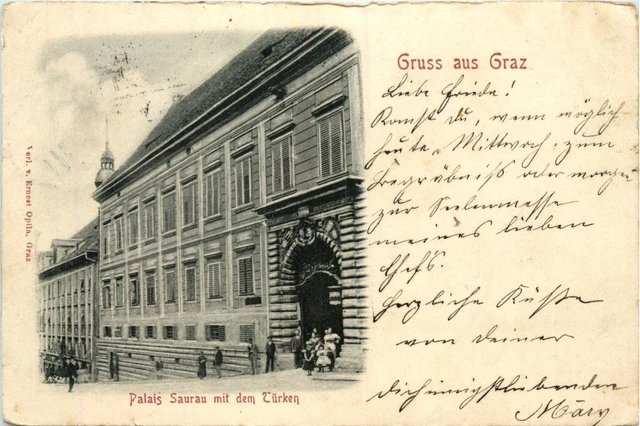 Gruss aus Graz
Liebe Friede!
Komst du, wenn möglich
heute, Mittwoch, zum
Begräbniss oder morgen
zur Seelenmesse
meines lieben
Chef's.
Herzliche Küsse
von deiner
dichinnigstliebenden
Mary
Verl. v. Ernest Opitla, Graz
Palais Saurau mit dem Türken